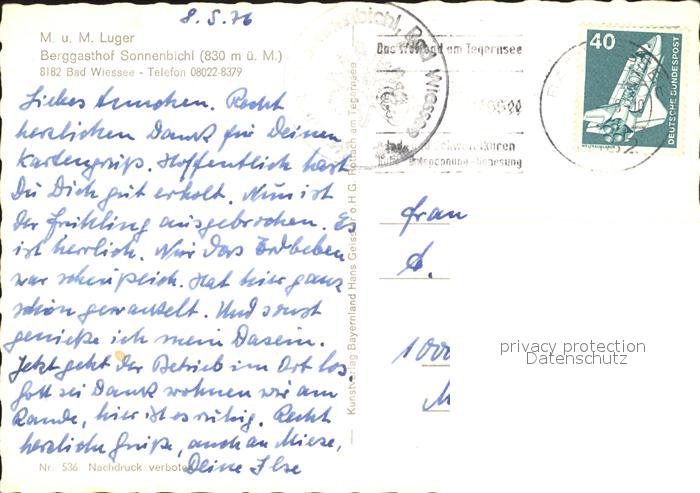 8.5.76
M. u. M. Luger
Berggasthof Sonnenbichl (830 m ü. M.)
8182 Bad Wiessee - Telefon 08022-8379
Liebes Annchen. Recht
herzlichen Dank für Deinen
Kartengruß. Hoffentlich hast
Du Dich gut erholt. Nun ist
der Frühling ausgebrochen. Es
ist herrlich. Nur das Erdbeben
war scheußlich. Hat hier ganz
schön gewackelt. Und sonst
genieße ich mein Dasein.
Jetzt geht der Betrieb im Ort los.
Gott sei Dank wohnen wir am
Rande, hier ist es ruhig. Recht
herzliche Grüße, auch an Miese,
Deine Ilse
Nr. 536 Nachdruck verboten
Kunstverlag Bayernland Hans Geisser o.H.G. Rottach am Tegernsee
bichl, Bad Wiessee
am Tegernsee
40
DEUTSCHE BUNDESPOST
Frau
A.
1000
privacy protection
Datenschutz